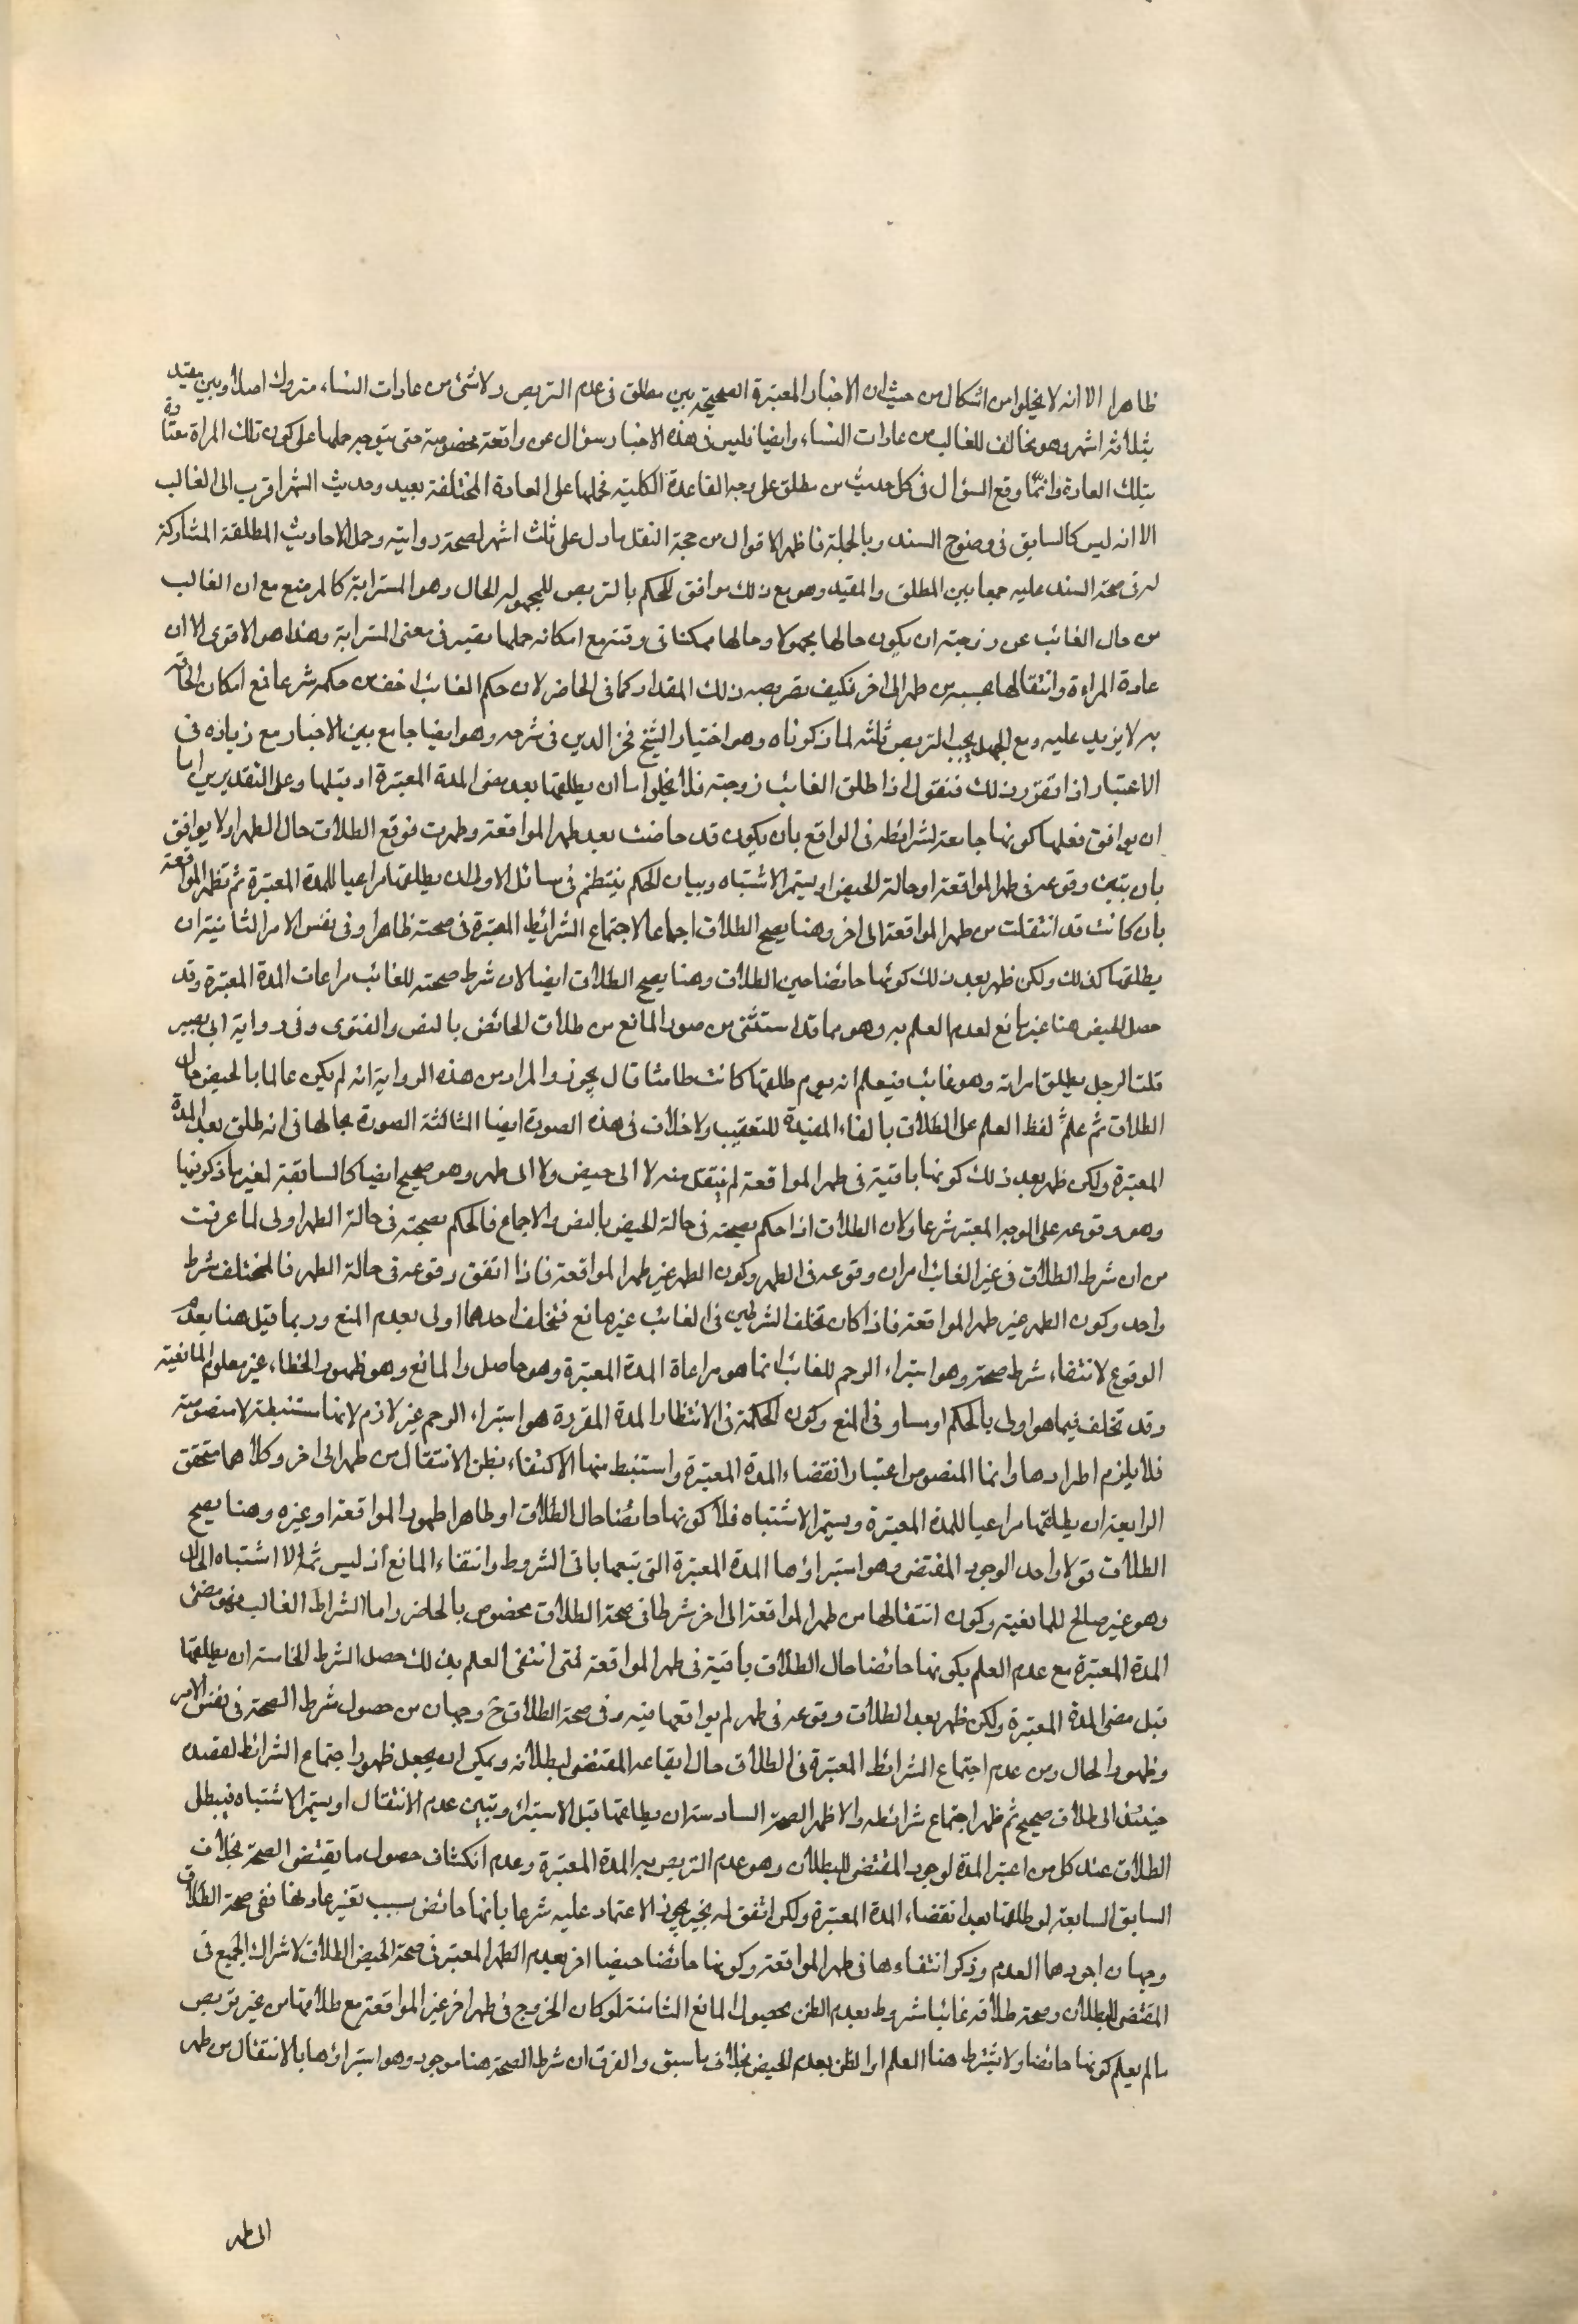 ظاهرا الا انه لا يخلوا من اشكال من حيث ان الاخبار المعتبرة الصحيحة بين مطلق فى عدم التربص ولا شئ من عادات النساء متروك اصلا وبين مقيد
بثلاثة اشهر وهو مخالف للغالب من عادات النساء وايضا فليس فى هذه الاخبار سؤال عن واقعة مخصوصة حتى يتوجه حملها على كون تلك المراة معتادة
بتلك العادة وانما وقع السؤال فى كل حديث من مطلق على وجه القاعدة الكلية فحملها على العادة المختلفة بعيد وحديث الشهر اقرب الى الغالب
الا انه ليس كالسابق فى وضوح السند وبالجملة فاظهر الاقوال من حجة النقل ما دل على ثلث اشهر لصحة روايته وحمل الاحاديث المطلقة المشاركة
له فى صحة السند عليه جمعا بين المطلق والمقيد وهو مع ذلك موافق للحكم بالتربص للمجهولة الحال وهو المسترابة كالمرضع مع ان الغالب
من حال الغائب عن زوجته ان يكون حالها مجهولا وحالها ممكنا فى وقته مع امكانه حملها بقيه فى معنى المسترابة وهذا هو الاقوى الا ان
عادة المراءة وانتقالها بحسبه من طهر الى اخر فكيف تصريحه ذلك المقدار كما فى الحاضر لان حكم الغائب اخف من حكمه شرعا فمع امكان الحاقه
به لا يزيد عليه ومع الجهل يجب التربص ثلثه لما ذكرناه وهو اختيار الشيخ فخر الدين فى شرحه وهو ايضا جامع بين الاخبار مع زيادة فى
الاعتبار اذا تقرر ذلك فنقول اذا طلق الغائب زوجته فلا يخلوا اما ان يطلقها بعد مضى المدة المعتبرة او قبلها وعلى التقديرين اما
ان يوافق فعلها كونها جامعة لشرائطه فى الواقع بان يكون قد حاضت بعد طهر المواقعة وطهرت فوقع الطلاق حال الطهر او لا يوافق
بان تبين وقوعه فى طهر المواقعة او حالة الحيض او يستمر الاشتباه وبيان الحكم ينتظم فى مسائل الاولى ان يطلقها مراعيا للمدة المعتبرة ثم تظهر الموافقة
بان كانت قد انتقلت من طهر المواقعة الى اخر وهنا يصح الطلاق اجماعا لاجتماع الشرائط المعتبرة فى صحته ظاهرا وفى نفس الامر الثانية ان
يطلقها كذلك ولكن ظهر بعد ذلك كونها حائضا حين الطلاق وهنا يصح الطلاق ايضا لان شرط صحته للغائب مراعات المدة المعتبرة وقد
حصل الحيض هنا غير مانع لعدم العلم به وهو مما قد استثنى من صور المانع من طلاق الحائض بالنص والفتوى وفى رواية ابى بصير
قلت الرجل يطلق امراته وهو غائب فيعلم انه يوم طلقها كانت طامثا قال يجوز والمراد من هذه الرواية انه لم يكن عالما بالحيض حال
الطلاق ثم علم لفظ العلم على الطلاق بالفاء المفيدة للتعقيب ولا خلاف فى هذه الصورة ايضا الثالثة الصورة بحالها فى انه طلق بعد المدة
المعتبرة ولكن ظهر بعد ذلك كونها باقية فى طهر المواقعة لم ينتقل منه لا الى حيض ولا الى طهر وهو صحيح ايضا كالسابقة لغير ما ذكر فيها
وهو وقوعه على الوجه المعتبر شرعا ولان الطلاق اذا حكم بصحته فى حالة الحيض بالنص والاجماع فالحكم بصحته فى حالة الطهر اولى لما عرفت
من ان شرط الطلاق فى غير الغائب امران وقوعه فى الطهر وكون الطهر غير طهر المواقعة فاذا اتفق وقوعه فى حالة الطهر فالمختلف شرط
واحد وكون الطهر غير طهر المواقعة فاذا كان تخلف الشرطين فى الغائب غير مانع فتخلف احدهما اولى بعدم المنع وربما قيل هنا بعدم
الوقوع لانتفاء شرط صحته وهو استبراء الرحم للغائب انما هو مراعاة المدة المعتبرة وهو حاصل والمانع وهو ظهور الخطاء غير معلوم المانعية
وقد تخلف فيما هو اولى بالحكم او مساو فى المنع وكون الحكمة فى الانتظار المدة المقررة هو استبراء الرحم غير لازم لانها مستنبطة لا منصوصة
فلا يلزم اطرادها وانما المنصوص اعتبار انقضاء المدة المعتبرة واستنبط منها الاكتفاء بظن الانتقال من طهر الى اخر وكلاهما متحقق
الرابعة ان يطلقها مراعيا للمدة المعتبرة ويستمر الاشتباه فلا كونها حائضا حال الطلاق او طاهرا طهور المواقعة او غيره وهنا يصح
الطلاق قولا واحد الوجود المقتضى وهو استبراؤها المدة المعتبرة التى تبعها باقى الشروط وانتفاء المانع اذ ليس ثم الا اشتباه الحال
وهو غير صالح للمانعية وكون انتقالها من طهر المواقعة الى اخر شرطا فى صحة الطلاق مخصوص بالحاضر واما اشراط الغالب فهو مضى
المدة المعتبرة مع عدم العلم بكونها حائضا حال الطلاق باقية فى طهر المواقعة فمتى انتفى العلم بذلك حصل الشرط الخامسة ان يطلقها
قبل مضى المدة المعتبرة ولكن ظهر بعد الطلاق وقوعه فى طهر لم يواقعها فيه وفى صحة الطلاق ح وجهان من حصول شرط الصحة فى نفس الامر
وظهور الحال ومن عدم اجتماع الشرائط المعتبرة فى الطلاق حال ايقاعه المقتضى لبطلانه ويمكن ان يجعل ظهور اجتماع الشرائط لقصده
حينئذ الى طلاق صحيح ثم ظهر اجتماع شرائطه والاظهر الصحة السادسة ان يطلقها قبل الاستبراء وتبين عدم الانتقال او يستمر الاشتباه فيبطل
الطلاق عند كل من اعتبر المدة لوجود المقتضى للبطلان وهو عدم التربص به المدة المعتبرة وعدم انكشاف حصول ما يقتضى الصحة بخلاف
السابق السابعة لو طلقها بعد انقضاء المدة المعتبرة ولكن اتفق له مخبر يجوز الاعتماد عليه شرعا بانها حائض بسبب تغير عادتها ففى صحة الطلاق
وجهان اجودهما العدم وذكر انتفاءها فى طهر المواقعة وكونها حائضا حيضا اخر بعدم الطهر المعتبر فى صحة الحيض الطلاق لاشراك الجميع فى
المقتضى للبطلان وصحة طلاقه غائبا مشروط بعدم الظن بحصول المانع الثامنة لو كان الخروج فى طهر اخر غير المواقعة مع طلاقها من غير تربص
ما لم يعلم كونها حائضا ولا يشترط هنا العلم او الظن بعدم الحيض بخلاف ما سبق والفرق ان شرط الصحة هنا موجود وهو استبراؤها بالانتقال من طهر
الى طهر